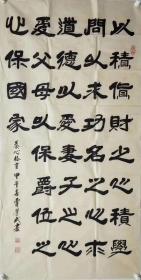 以積貨財之心積學
問以求功名之心求
道德以愛妻子之心
愛父母以保爵位之
心保國家
格言 甲午
書